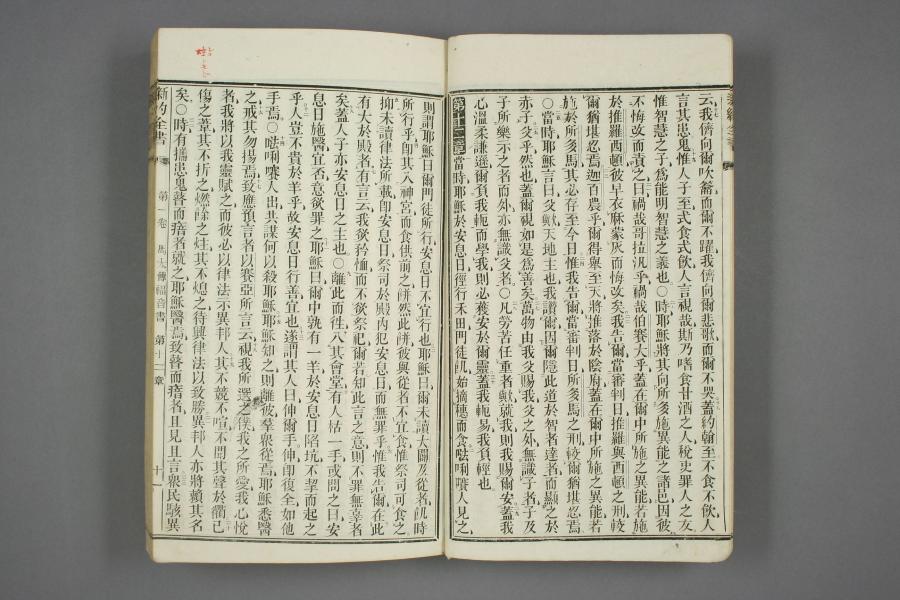 云我儕向爾吹籥而爾不躍我儕向爾悲歌而爾不哭蓋約翰至不食不飲人
言其患鬼惟人子至式食式飲人言視哉斯乃嗜食甘酒之人稅吏罪人之友
惟智慧之子爲能明智慧之義也○時耶穌將其向所多施異能之諸邑因彼
不悔改而責之曰禍哉哥拉汎乎禍哉伯賽大乎蓋在爾中所施之異能若施
於推羅西頓彼早衣麻蒙灰而悔改矣我告爾當審判日推羅與西頓之刑較
爾猶堪忍焉迦百農乎爾得舉至天將推落於陰府蓋在爾中所施之異能若
施於所多馬其必存至今日惟我告爾當審判日所多馬之刑較爾猶堪忍焉
○當時耶穌言曰父歟天地主也我讚爾因爾隱此道於智者達者而顯之於
赤子父乎然也蓋爾視如是爲善矣萬物由我父賜我父之外無識子者子及
子所樂示之者而外亦無識父者○凡勞苦任重者歟就我則我賜爾安蓋我
心溫柔謙遜爾負我軛而學我則必獲安於爾靈蓋我軛易我負輕也
第十二章 當時耶穌於安息日徑行禾田門徒飢始摘穗而食𠵽唎㘔人見之
則謂耶穌曰爾門徒所行安息日不宜行也耶穌曰爾未讀大闢及從者飢時
所行乎卽其入神宮而食供前之餅然此餅彼與從者不宜食惟祭司可食之
抑未讀律法所載卽安息日祭司於殿內犯安息日而無罪乎惟我告爾在此
有大於殿者有言云我欲矜恤而不欲祭祀爾若知此言之意則不罪無辜者
矣蓋人子亦安息日之主也○離此而往入其會堂有人枯一手或問之曰安
息日施醫宜否意欲罪之耶穌曰爾中孰有一羊於安息日陷坑不挈而起之
乎人豈不貴於羊乎故安息日行善宜也遂謂其人曰伸爾手伸卽復全如他
手焉○𠵽唎㘔人出共謀何以殺耶穌耶穌知之則離彼羣衆從焉耶穌悉醫
之戒其勿揚焉致應預言者以賽亞所言云視我所選之僕我之所愛我心悅
者我將以我靈賦之而彼必以律法示異邦人其不競不喧不聞其聲於衢已
傷之葦其不折之燃餘之炷其不熄之待興律法以致勝異邦人亦將賴其名
矣○時有攜患鬼瞽而瘖者就之耶穌醫焉致瞽而瘖者且見且言衆民駭異
新約全書 第一卷 馬太傳福音書 第十二章 十一